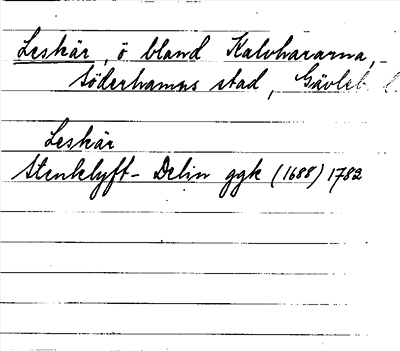 Leskär, ö bland Kalvhararna,
Söderhamns stad, Gävleb. l.
Leskär
Stenklyft - Delin ggk (1688) 1782